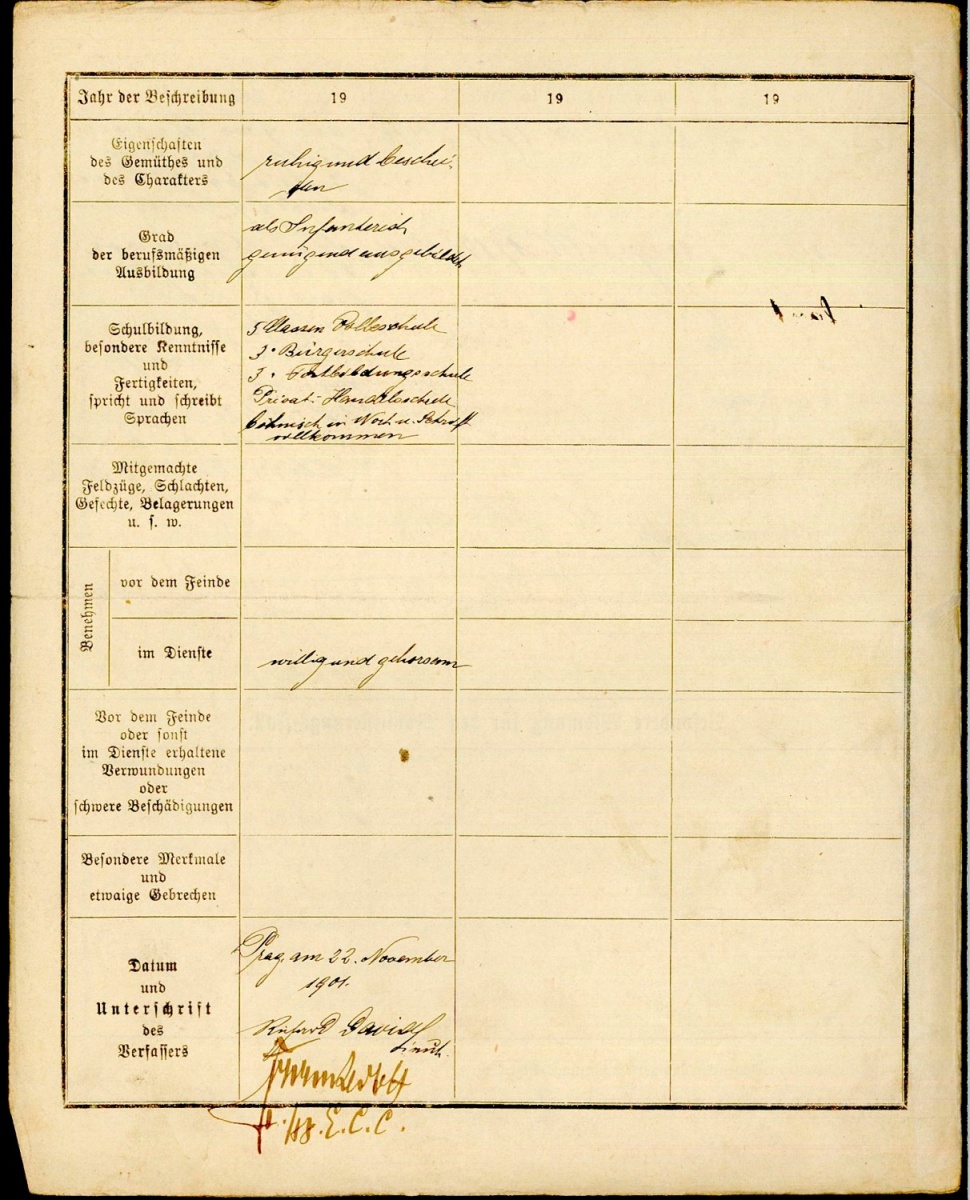 Jahr der Beschreibung 19 19 19
Eigenschaften
des Gemüthes und
des Charakters
ruhig und beschei-
den
Grad
der berufsmäßigen
Ausbildung
als Infanterist
genügend ausgebildet
Schulbildung,
besondere Kenntnisse
und
Fertigkeiten,
spricht und schreibt
Sprachen
5 Classen Volksschule
3 " Bürgerschule
3 " Fortbildungsschule
Privat-Handelsschule
böhmisch in Wort u. Schrift
vollkommen
Mitgemachte
Feldzüge, Schlachten,
Gefechte, Belagerungen
u. s. w.
Benehmen
vor dem Feinde
im Dienste
willig und gehorsam
Vor dem Feinde
oder sonst
im Dienste erhaltene
Verwundungen
oder
schwere Beschädigungen
Besondere Merkmale
und
etwaige Gebrechen
Datum
und
Unterschrift
des
Verfassers
Prag, am 22. November
1901.
Lieut.
E. C. C.